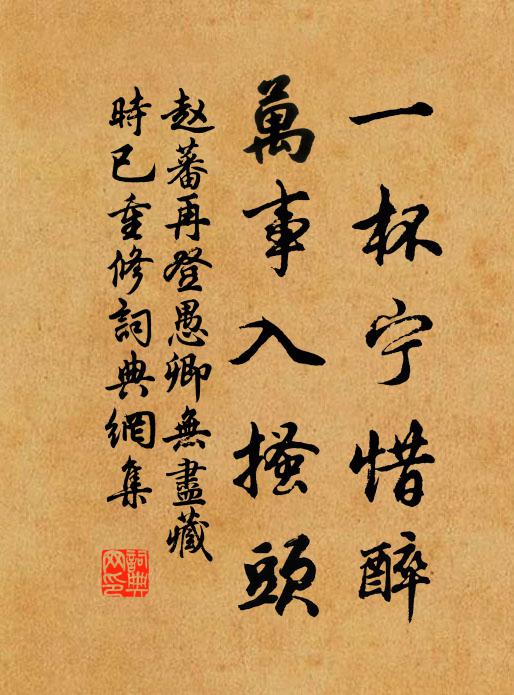 一杯宁惜醉
萬事入搔頭
赵蕃再登愚卿無盡藏
時已重修詞典網集
詞典網印